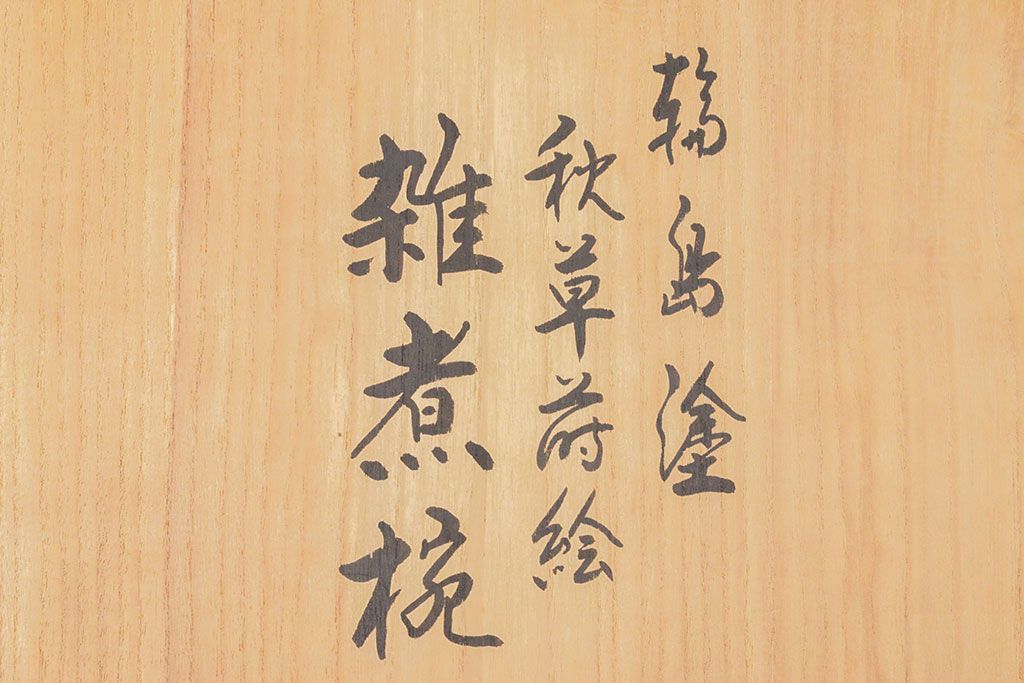 輪島塗
秋草蒔絵
雑煮椀